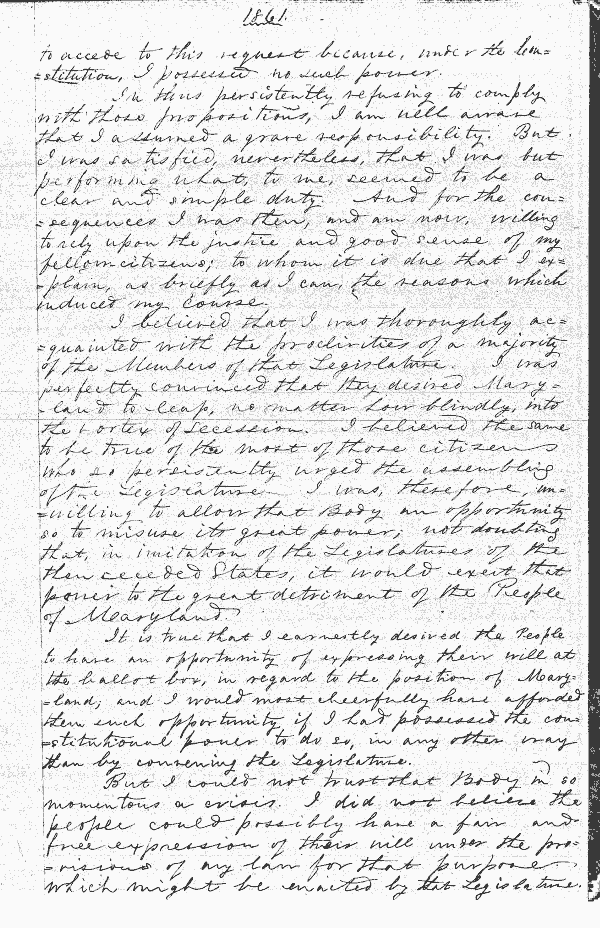 1861.
to accede to this request because, under the Con=
=stitution, I possessed no such power.
In thus persistently refusing to comply
with those propositions, I am well aware
that I assumed a grave responsibility. But
I was satisfied, nevertheless, that I was but
performing what, to me, seemed to be a
clear and simple duty. And for the con=
=sequences I was then, and am now, willing
to rely upon the justice and good sense of my
fellow citizens; to whom it is due that I ex=
=plain, as briefly as I can, the reasons which
induced my course.
I believed that I was thoroughly ac=
=quainted with the proclivities of a majority
of the Members of that Legislature. I was
perfectly convinced that they desired Mary=
=land to leap, no matter how blindly, into
the vortex of secession. I believed the same
to be true of the most of those citizens
who so persistently urged the assembling
of the Legislature. I was, therefore, un=
=willing to allow that Body an opportunity
so to misuse its great power; not doubting
that, in imitation of the Legislatures of the
then seceded States, it would exert that
power to the great detriment of the People
of Maryland.
It is true that I earnestly desired the People
to have an opportunity of expressing their will at
the ballot box, in regard to the position of Mary=
=land; and I would most cheerfully have afforded
them such opportunity if I had possessed the con=
=stitutional power to do so, in any other way
than by convening the Legislature.
But I could not trust that Body in so
momentous a crisis. I did not believe the
people could possibly have a fair and
free expression of their will under the pro=
=visions of any law for that purpose
which might be enacted by that Legislature.